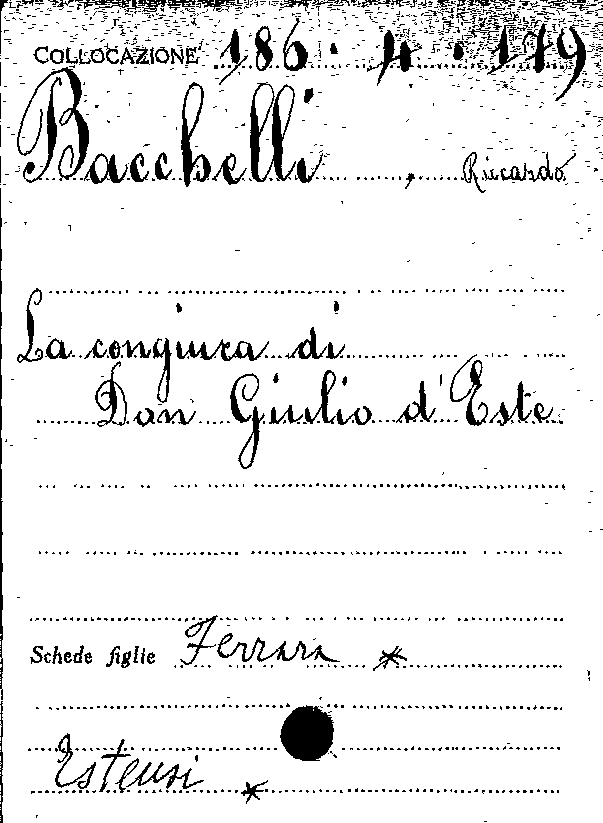 COLLOCAZIONE 186 · 4 · 179
Bacchelli, Riccardo
La congiura di
Don Giulio d'Este
Schede figlie Ferrara *
Estensi *